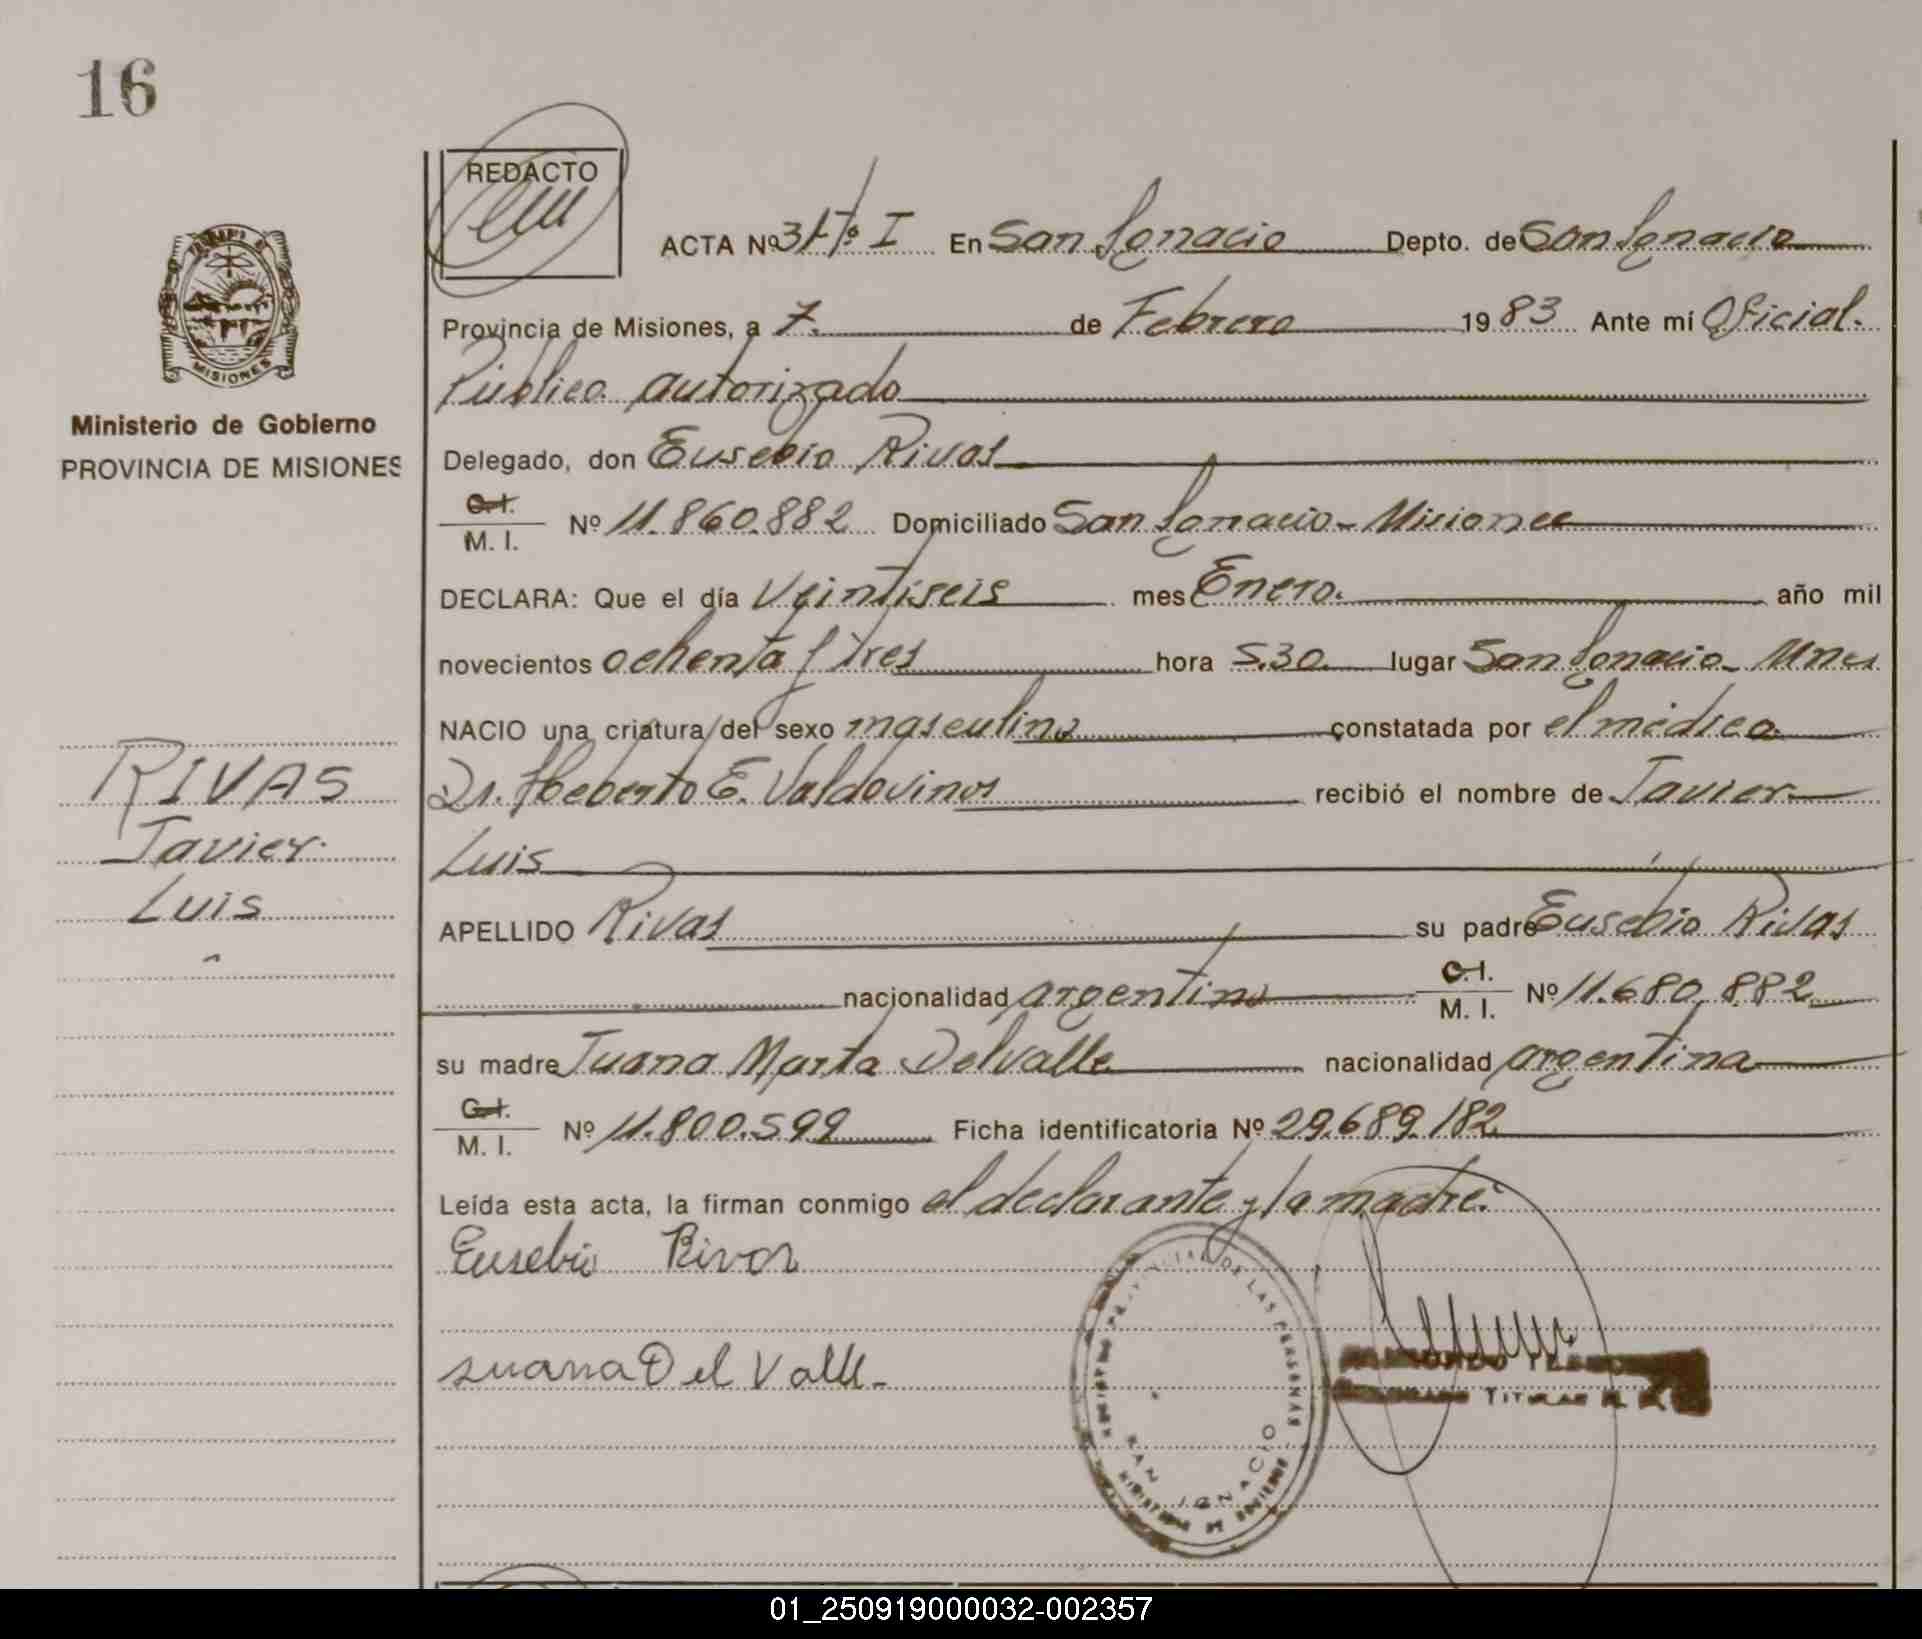 16
REDACTO
ACTA Nº 31-Tº I En San Ignacio Depto. de San Ignacio
Provincia de Misiones, a 7. de Febrero 1983 Ante mí Oficial
Público autorizado
MISIONES
Ministerio de Gobierno
PROVINCIA DE MISIONES
Delegado, don Eusebio Rivas
C.I. M. I. Nº 11.860.882 Domiciliado San Ignacio - Misiones
DECLARA: Que el día Veintiseis mes Enero. año mil
novecientos ochenta y tres hora 5.30 lugar San Ignacio - Mnes
NACIO una criatura del sexo masculino constatada por el médico
Dr. Heberto E. Valdovinos recibió el nombre de Javier
Luis
RIVAS
Javier
Luis
APELLIDO Rivas su padre Eusebio Rivas
nacionalidad argentino C.I. M. I. Nº 11.680.882
su madre Juana Marta Delvalle nacionalidad argentina
C.I. M. I. Nº 11.800.599 Ficha identificatoria Nº 29.689.182
Leída esta acta, la firman conmigo el declarante y la madre.
Eusebio Rivas
Juana Del Valle
DE LAS PERSONAS
SAN IGNACIO
TITULAR
01_250919000032-002357